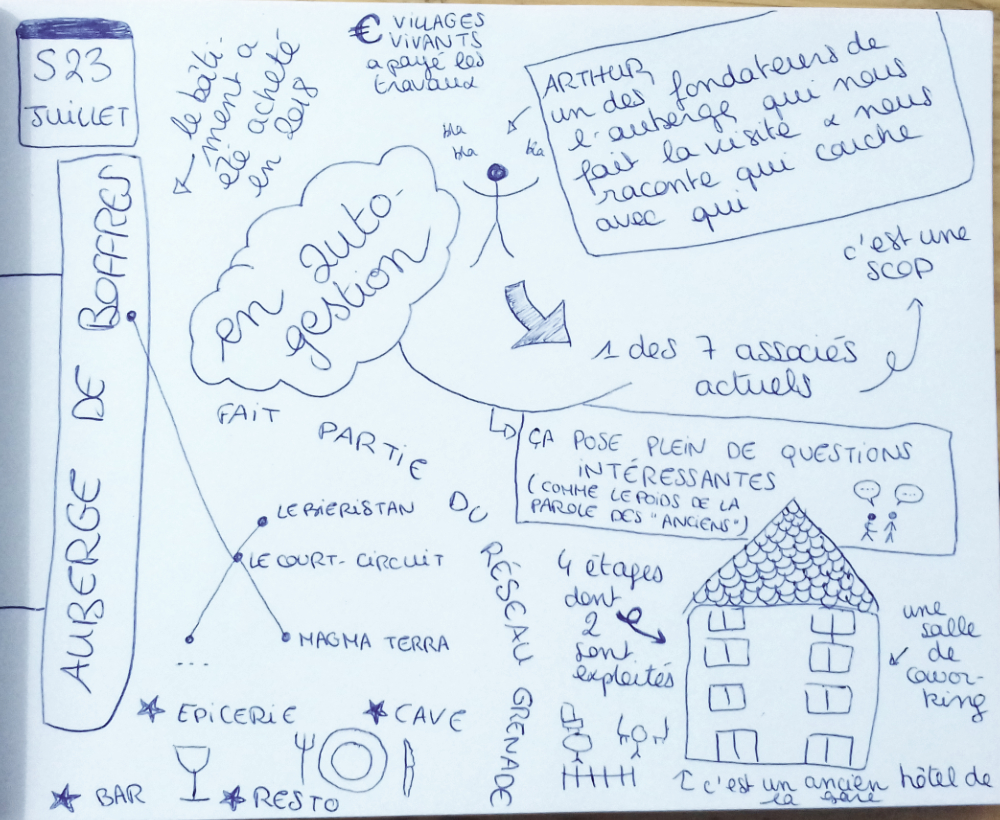 S 23
JUILLET
AUBERGE DE BOFFRES
le bâti-
ment a
été acheté
en 2018
€ VILLAGES
VIVANTS
a payé les
travaux
bla
bla
bla
ARTHUR,
un des fondateurs de
l'auberge, qui nous
fait la visite & nous
raconte qui couche
avec qui
en auto-
gestion
1 des 7 associés
actuels
c'est une
SCOP
ÇA POSE PLEIN DE QUESTIONS
INTÉRESSANTES
(COMME LE POIDS DE LA
PAROLE DES "ANCIENS")
FAIT PARTIE DU RÉSEAU GRENADE
LE BIERISTAN
LE COURT-CIRCUIT
MAGMA TERRA
...
4 étages
dont
2
sont
exploités
une
salle
de
cowor-
king
c'est un ancien hôtel de
la gare
EPICERIE
CAVE
BAR
RESTO